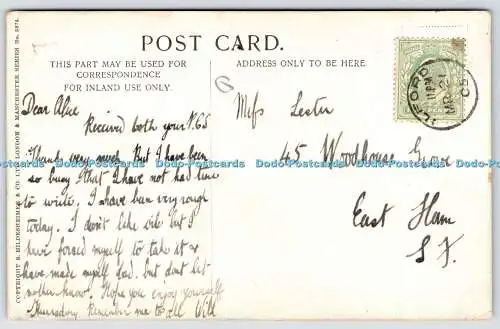 POST CARD.
THIS PART MAY BE USED FOR
CORRESPONDENCE
FOR INLAND USE ONLY.
ADDRESS ONLY TO BE HERE.
COPYRIGHT R. HILDESHEIMER & CO. LTD. LONDON & MANCHESTER SERIES No. 5274.
Dear Alice
Received both your P.Cs
Thank very much. But I have been
so busy that I have not had time
to write. I have been very rough
today. I don't like vile but I
have forced myself to take it &
have made myself bad. but dont let
mother know. Hope you enjoy yourself
Thursday. Remember me to all Will
Miss Lester
45 Woodhouse Grove
East Ham
ILFORD
11 PM
MR 21
Dodo-Postcards.com Dodo-Postcards.com Dodo-Postcards.com Dodo-Postcards.com